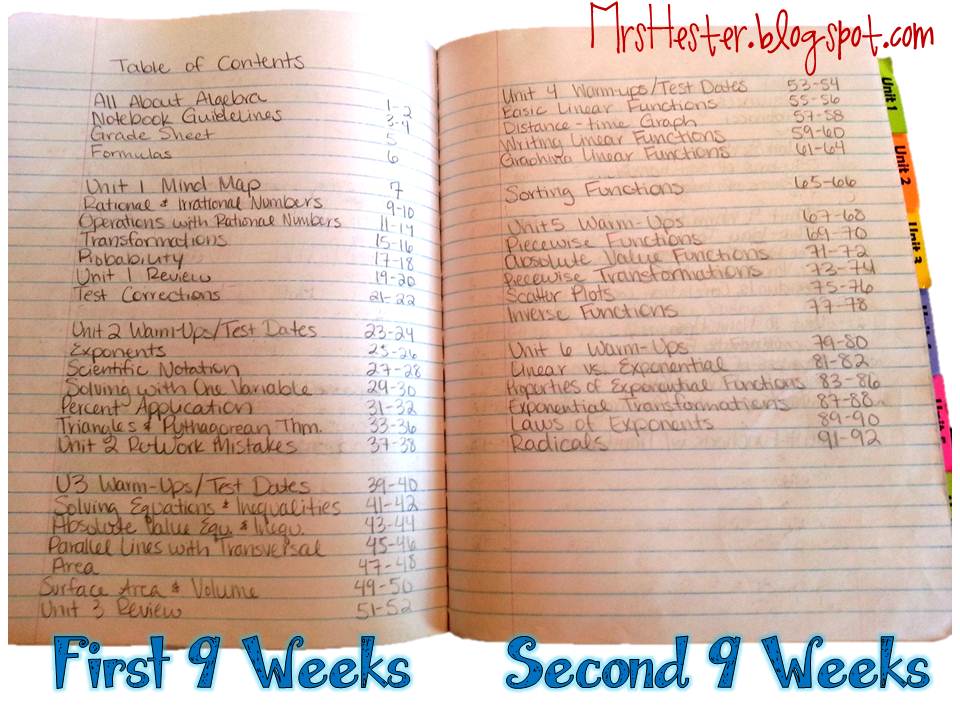 MrsHester.blogspot.com
Table of Contents
All About Algebra 1-2
Notebook Guidelines 3-4
Grade Sheet 5
Formulas 6
Unit 1 Mind Map 7
Rational & Irrational Numbers 9-10
Operations with Rational Numbers 11-14
Transformations 15-16
Probability 17-18
Unit 1 Review 19-20
Test Corrections 21-22
Unit 2 Warm-Ups/Test Dates 23-24
Exponents 25-26
Scientific Notation 27-28
Solving with One Variable 29-30
Percent Application 31-32
Triangles & Pythagorean Thm. 33-36
Unit 2 Re-Work Mistakes 37-38
U3 Warm-Ups/Test Dates 39-40
Solving Equations & Inequalities 41-42
Absolute Value Equ. & Inequ. 43-44
Parallel Lines with Transversal 45-46
Area 47-48
Surface Area & Volume 49-50
Unit 3 Review 51-52
First 9 Weeks
Unit 4 Warm-ups/Test Dates 53-54
Basic Linear Functions 55-56
Distance-time Graph 57-58
Writing Linear Functions 59-60
Graphing Linear Functions 61-64
Sorting Functions 65-66
Unit 5 Warm-Ups 67-68
Piecewise Functions 69-70
Absolute Value Functions 71-72
Piecewise Transformations 73-74
Scatter Plots 75-76
Inverse Functions 77-78
Unit 6 Warm-Ups 79-80
Linear vs. Exponential 81-82
Properties of Exponential Functions 83-86
Exponential Transformations 87-88
Laws of Exponents 89-90
Radicals 91-92
Second 9 Weeks
Unit 1
Unit 2
Unit 3